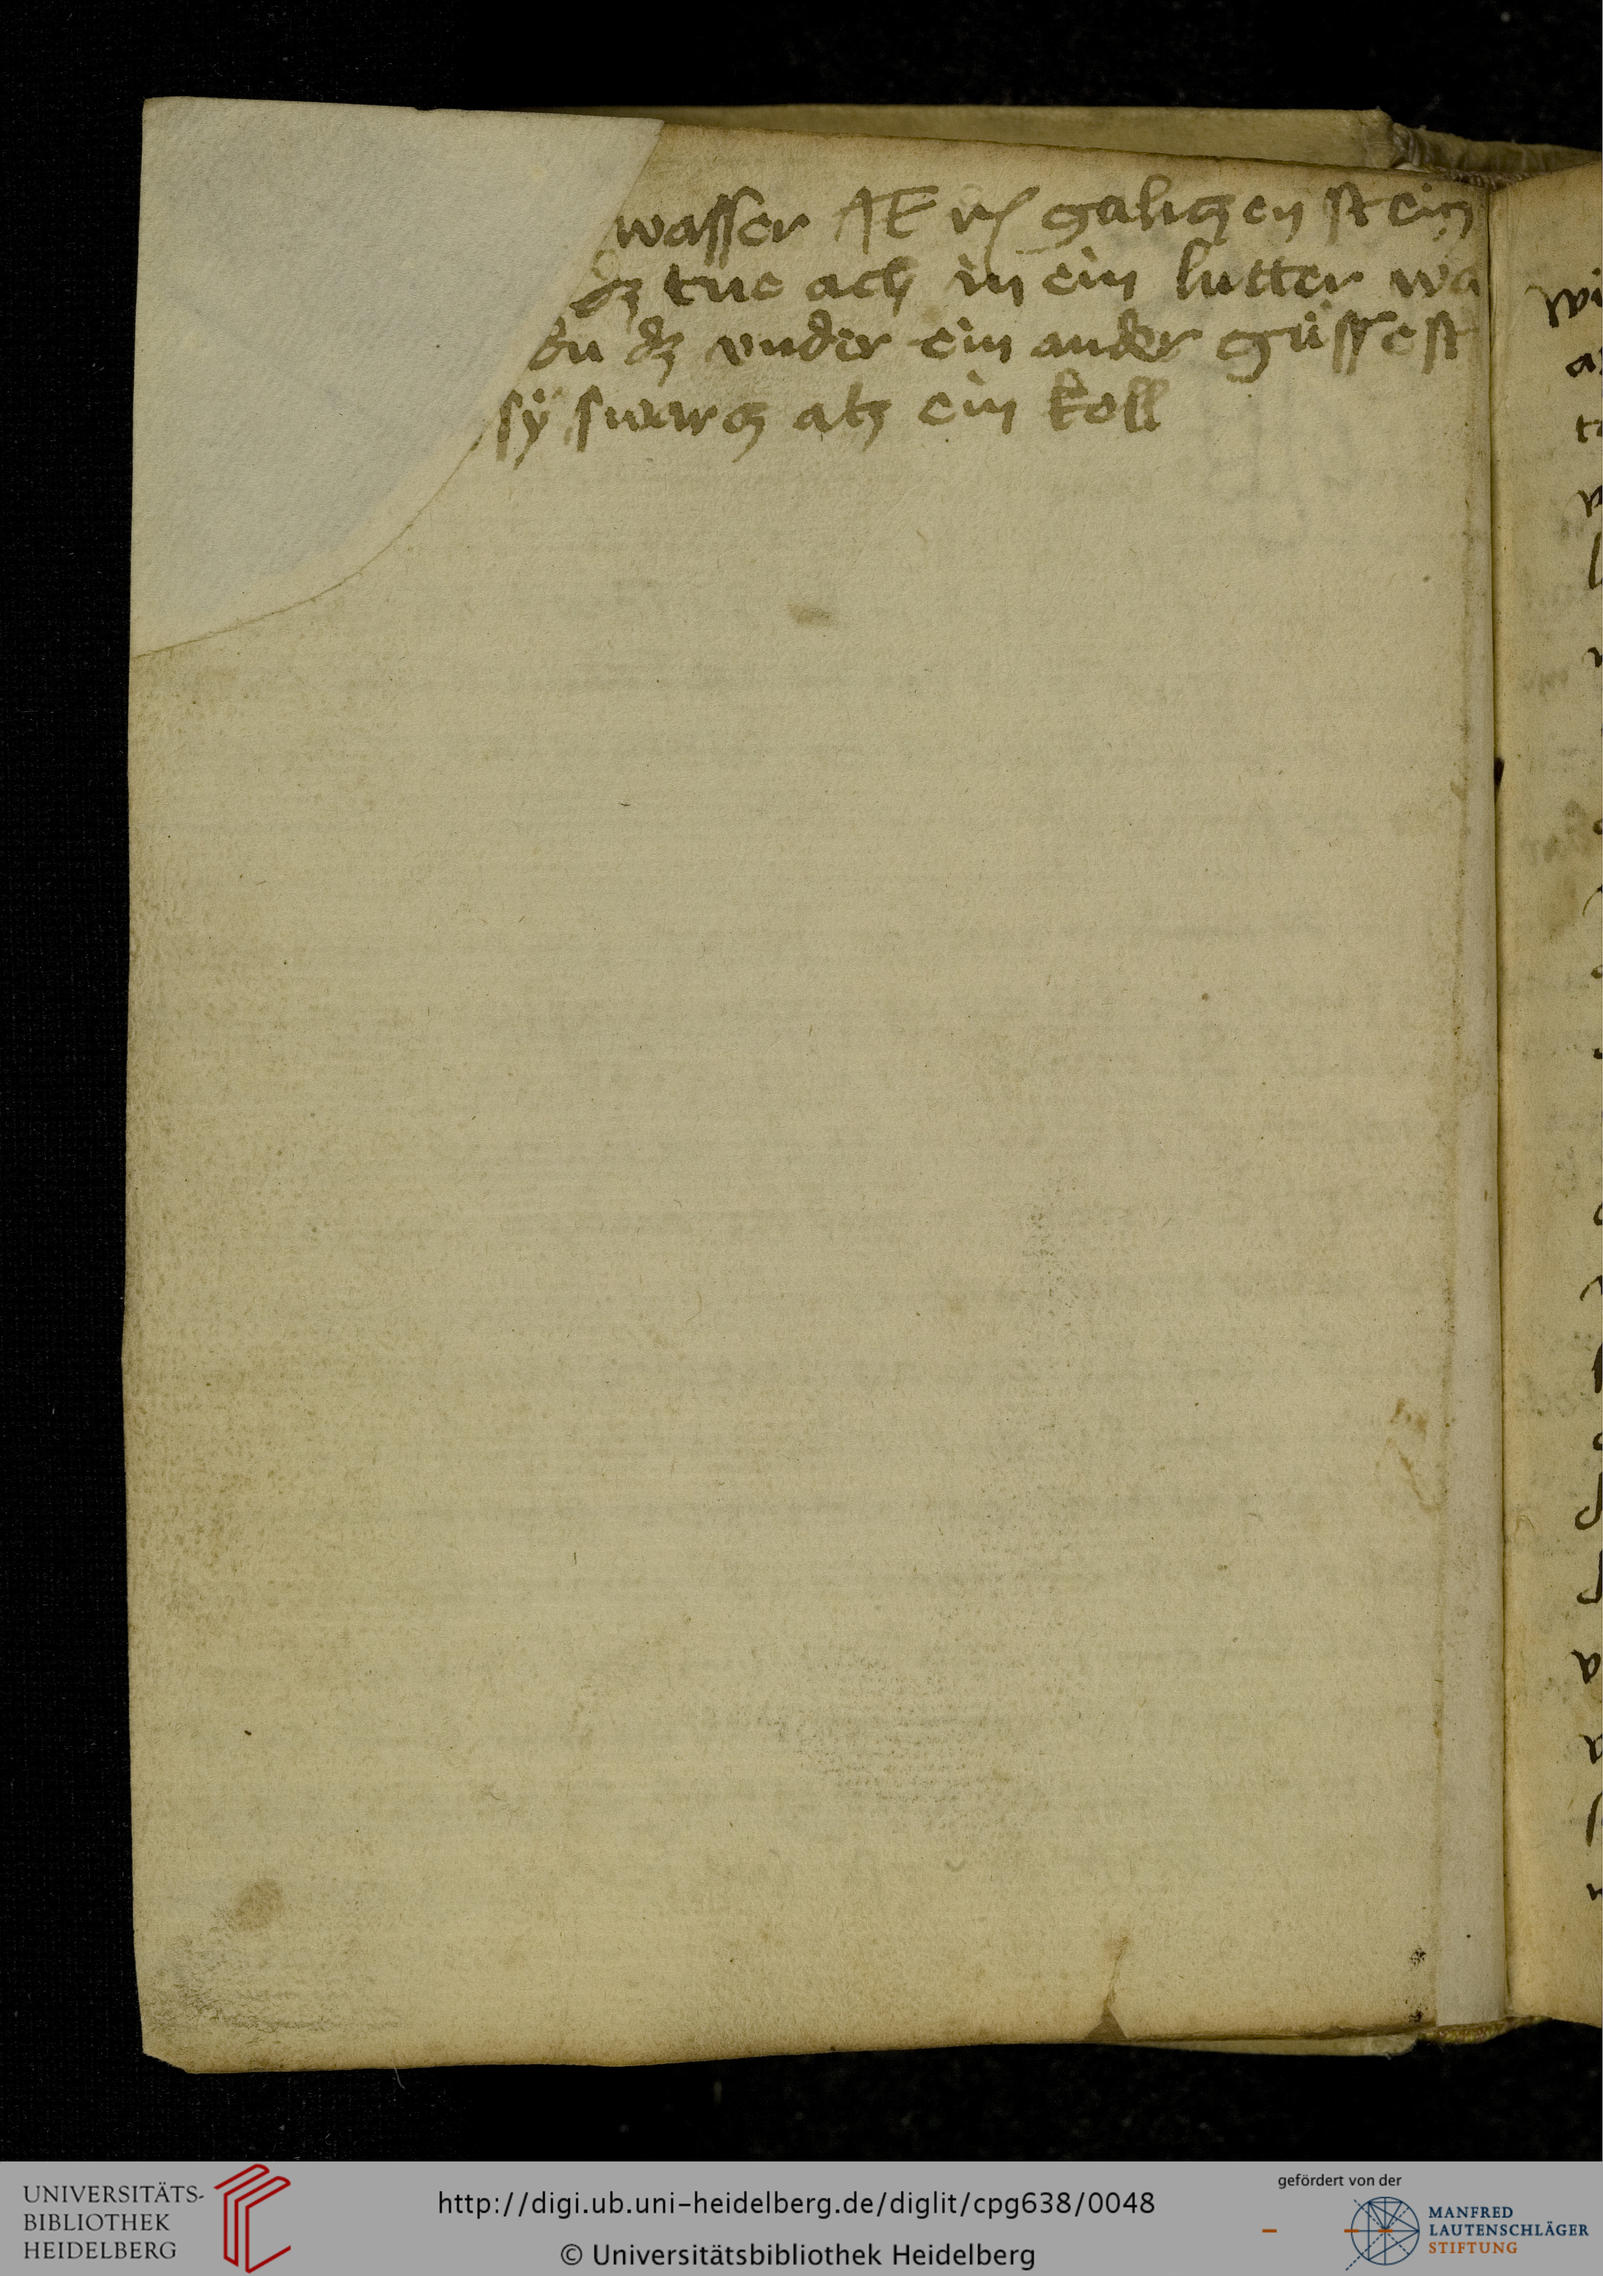 wasser
galiczen stein
dz tue ach in ein lutter wa
du dz vnder ein ander güssest
sÿ swarcz alz ein koll
UNIVERSITÄTS-
BIBLIOTHEK
HEIDELBERG
http://digi.ub.uni-heidelberg.de/diglit/cpg638/0048
© Universitätsbibliothek Heidelberg
gefördert von der
MANFRED
LAUTENSCHLÄGER
STIFTUNG